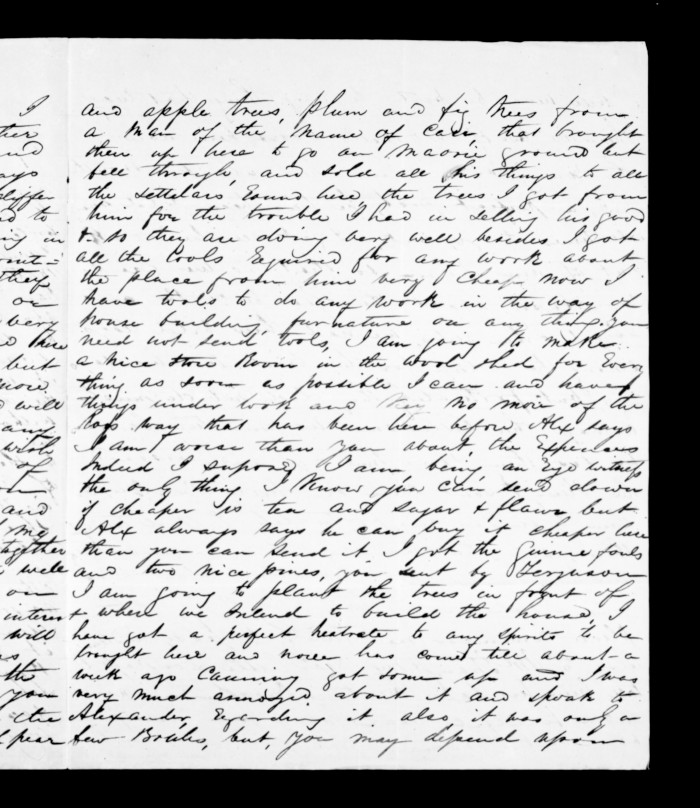 and apple trees, plum and fig trees from
a man of the name of Carr, that brought
them up here to go on Maorie ground but
fell through, and sold all his things to all
the settelars Eound here, the trees I got from
him for the trouble I had in selling his good
& so they are doing very well besides I got
all the tools Equired for any work about
the place from him very Cheap now I
have tools to do any work in the way of
house building, furnature or any thing, you
need not send tools, I am going to make
a nice store Room in the wool shed for Every
thing as soon as possible I can and have
things under look and no more of the
way that has been here before Alx says
I am worse than you about the Expences
Indeed I supose, I am being an Eye witness
the only thing I know you can send down
if cheaper is tea and sugar & flaur but
Alx always says he can buy it cheaper here
than you can send it I got the Guinne fouls
and two nice pines, you sent by Ferguson
I am going to plant the trees in front of
where we Intend to build the house, I
have got a perfect heatrate to any spirits to be
brought here and none has comed till about a
week ago Canning got some up and I was
very much annoyed about it and spoak to
Alexander Egarding it also it was only a
few Botles, but, you may depend upon
I
ther
and
ays
to
ing in
they
or
very
here
but
more
will
any
wish
of
on
and
ma
together
well
on
interest
will
the
you
the
pear